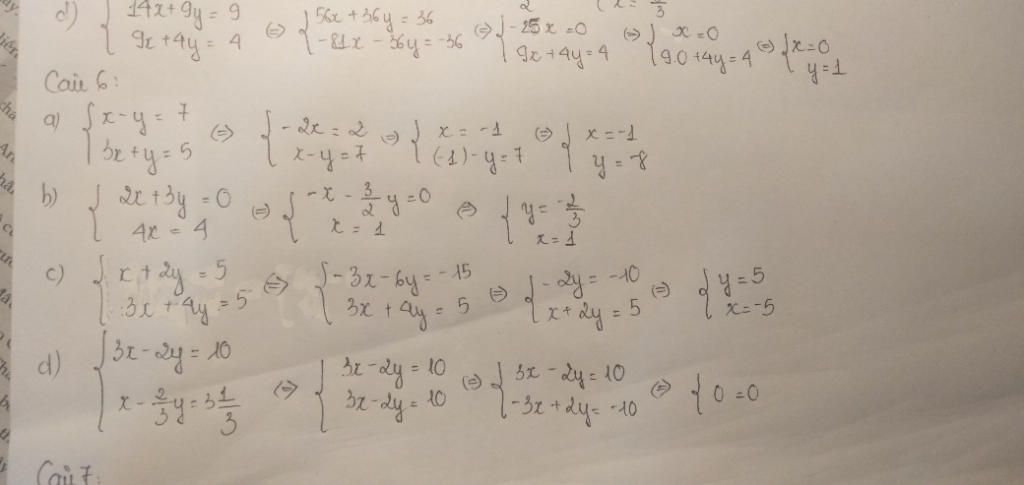 d) { 14x + 9y = 9 ; 9x + 4y = 4 ⇔ { 56x + 36y = 36 ; -81x - 36y = -36 ⇔ { -25x = 0 ; 9x + 4y = 4 ⇔ { x = 0 ; 9.0 + 4y = 4 ⇔ { x = 0 ; y = 1
Câu 6:
a) { x - y = 7 ; 3x + y = 5 ⇔ { -2x = 2 ; x - y = 7 ⇔ { x = -1 ; (-1) - y = 7 ⇔ { x = -1 ; y = -8
b) { 2x + 3y = 0 ; 4x = 4 ⇔ { -x - 3/2 y = 0 ; x = 1 ⇔ { y = -2/3 ; x = 1
c) { x + 2y = 5 ; 3x + 4y = 5 ⇔ { -3x - 6y = -15 ; 3x + 4y = 5 ⇔ { -2y = -10 ; x + 2y = 5 ⇔ { y = 5 ; x = -5
d) { 3x - 2y = 10 ; x - 2/3 y = 3 1/3 ⇔ { 3x - 2y = 10 ; 3x - 2y = 10 ⇔ { 3x - 2y = 10 ; -3x + 2y = -10 ⇔ { 0 = 0
Câu 7: